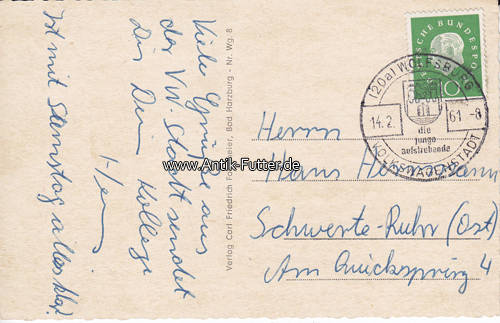 Viele Grüße aus
der VW-Stadt sendet
Dir Dein Kollege
Ist mit Samstag alles klar?
Verlag Carl Friedrich Meier, Bad Harzburg - Nr. Wg. 8
DEUTSCHE BUNDESPOST
10
(20a) WOLFSBURG
14.2. 61 -8
die
junge
aufstrebende
VOLKSWAGENSTADT
Herrn
Hans
Schwerte-Ruhr (Ost)
Am Quickspring 4
www.Antik-Futter.de